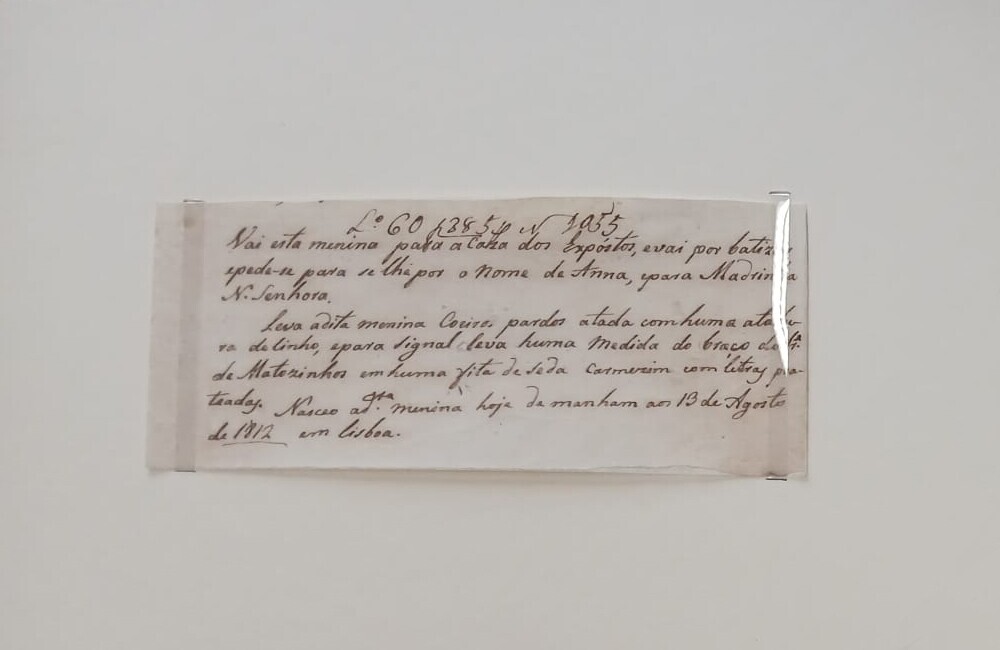 L.º 60 f 285 N 1055
Vai esta menina para a Caza dos Expóstos, e vai por batizar
epede-se para se lhe por o Nome de Anna, epara Madrinha
N. Senhora.
Leva adita menina Coeiros pardos atada com huma atadu-
ra de linho, epara signal leva huma Medida do braço do Sr.
de Matozinhos em huma fita de seda Carmezim com letras pra-
teadas. Nasceo ad.ta menina hoje de manham aos 13 de Agosto
de 1812 em Lisboa.